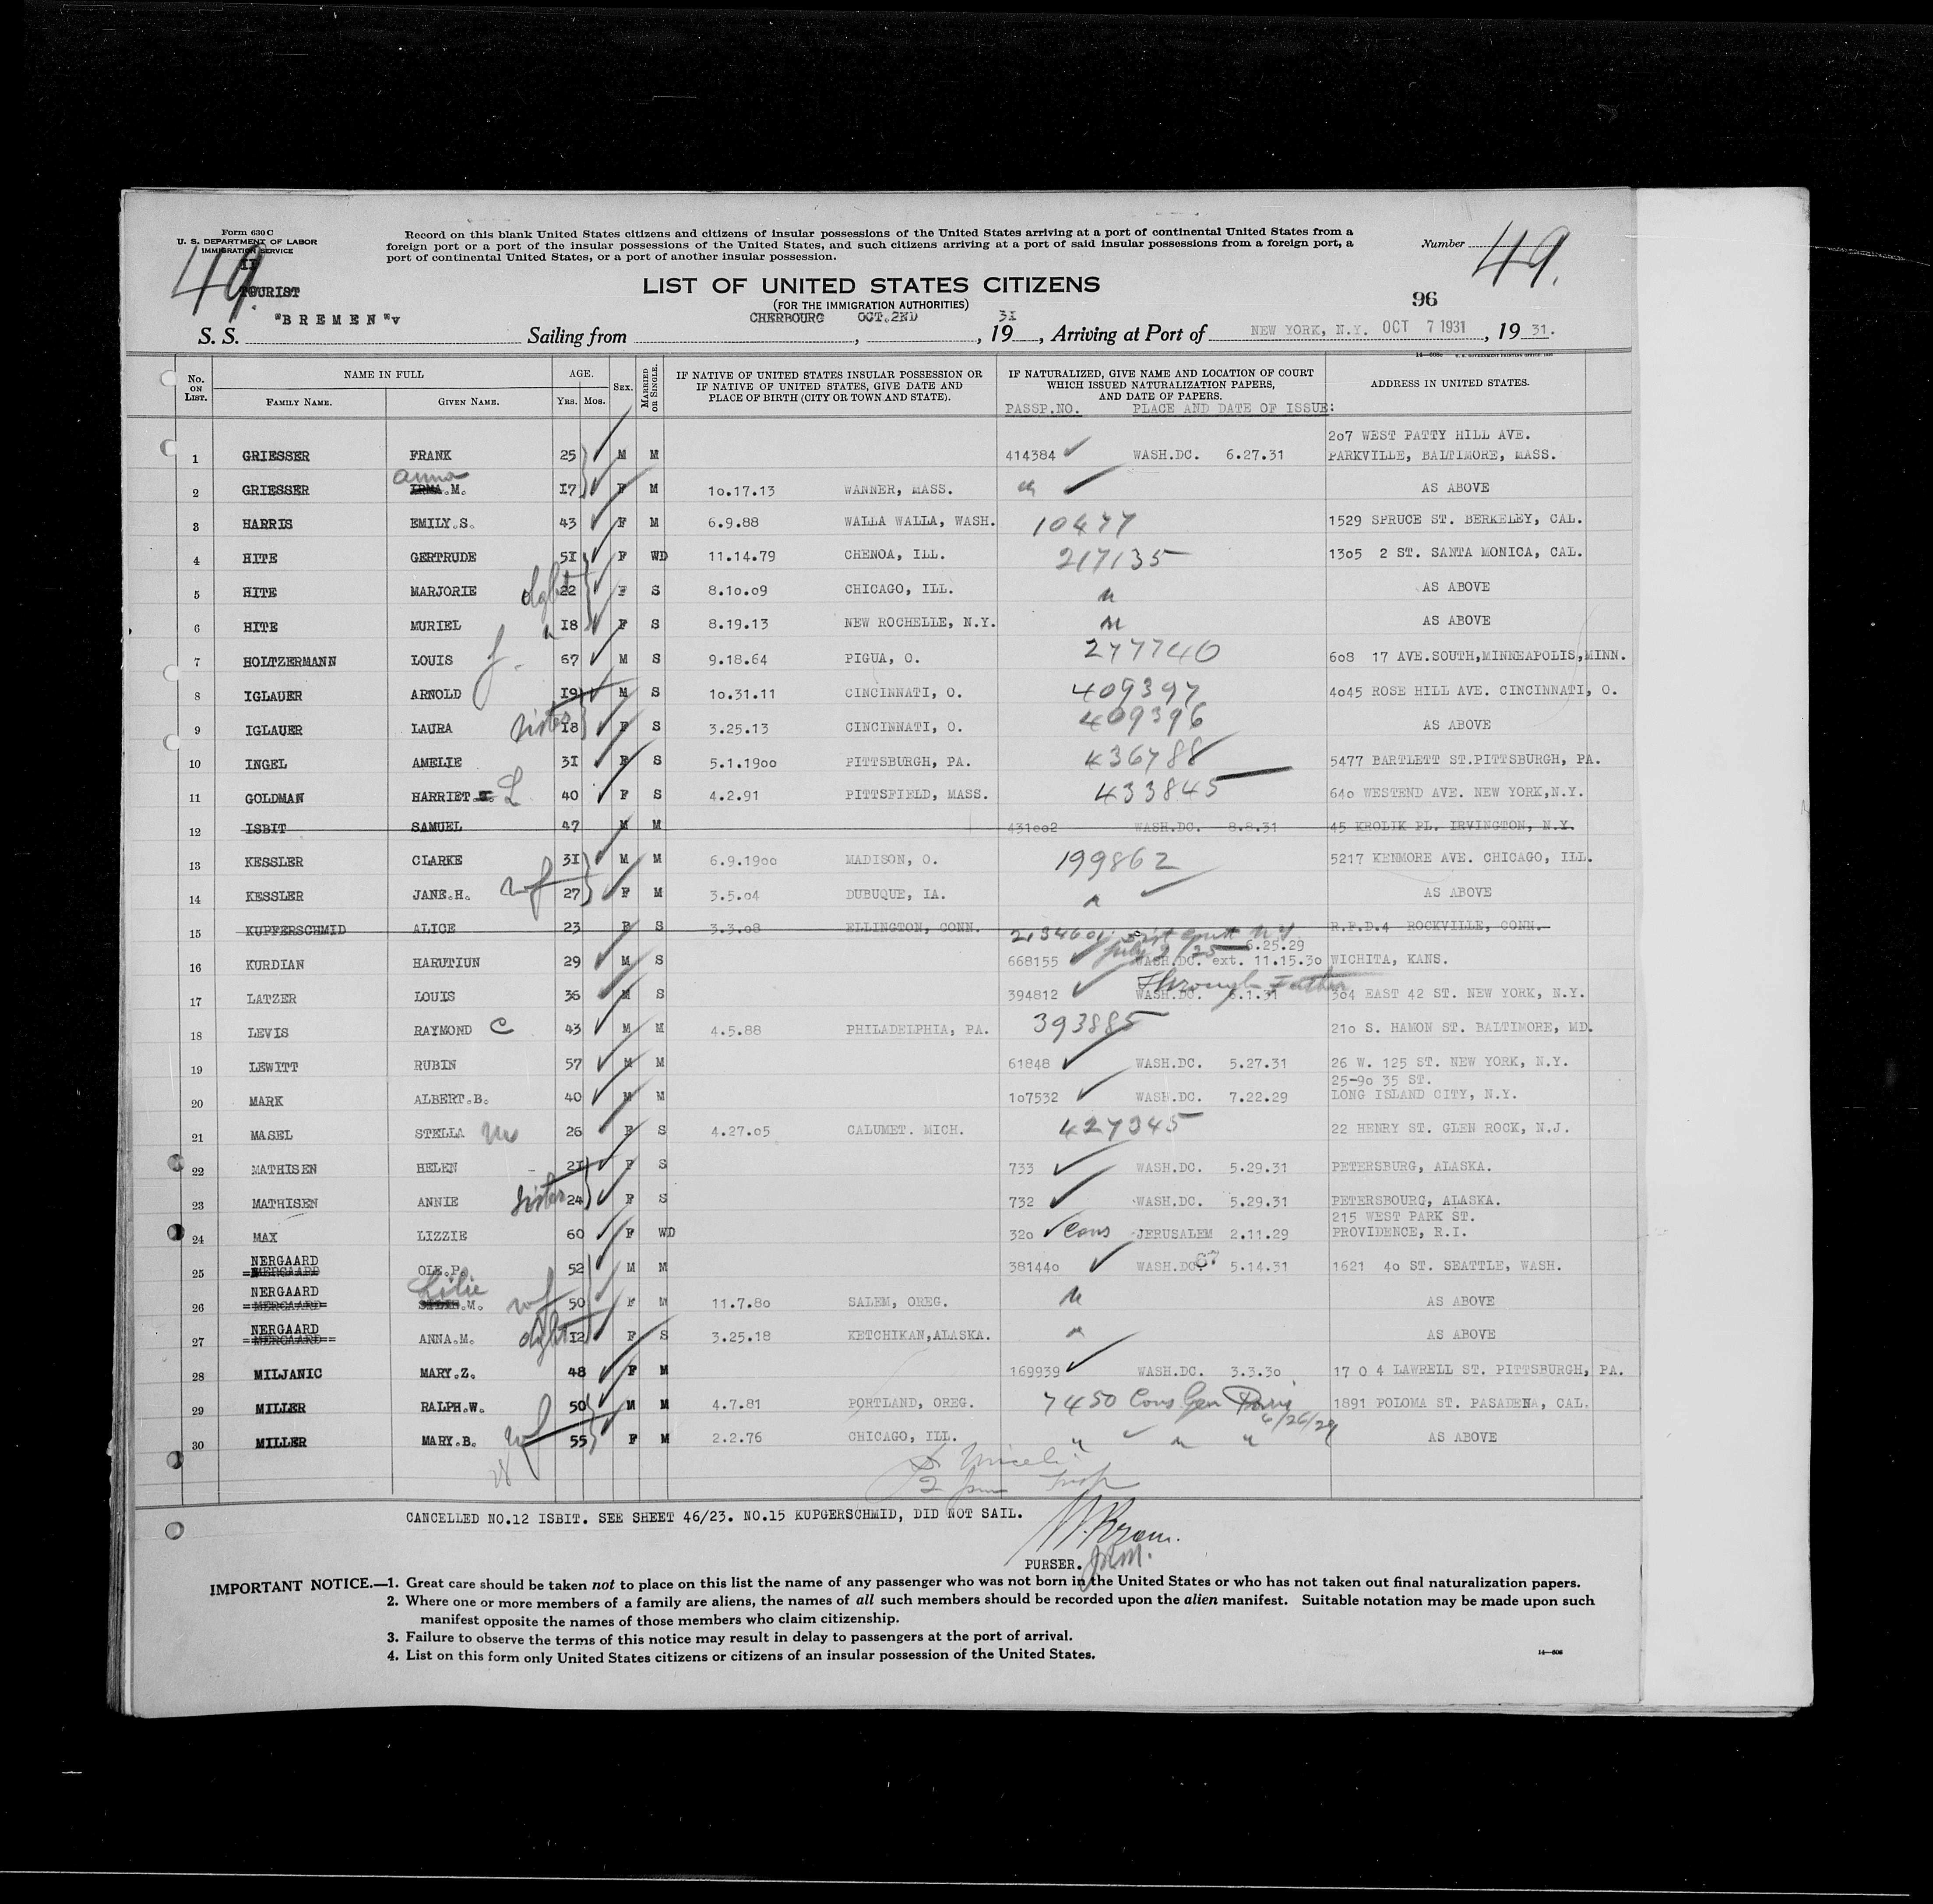 Form 630 C
U. S. DEPARTMENT OF LABOR
IMMIGRATION SERVICE
II
TOURIST
49.
Record on this blank United States citizens and citizens of insular possessions of the United States arriving at a port of continental United States from a
foreign port or a port of the insular possessions of the United States, and such citizens arriving at a port of said insular possessions from a foreign port, a
port of continental United States, or a port of another insular possession.
Number 49.
LIST OF UNITED STATES CITIZENS
(FOR THE IMMIGRATION AUTHORITIES)
96
S. S. "BREMEN"v Sailing from CHERBOURG , OCT.2ND , 19 31 , Arriving at Port of NEW YORK, N.Y. OCT 7 1931 , 19 31.
No. ON LIST. NAME IN FULL FAMILY NAME. GIVEN NAME. AGE. YRS. MOS. SEX. MARRIED OR SINGLE. IF NATIVE OF UNITED STATES INSULAR POSSESSION OR IF NATIVE OF UNITED STATES, GIVE DATE AND PLACE OF BIRTH (CITY OR TOWN AND STATE). IF NATURALIZED, GIVE NAME AND LOCATION OF COURT WHICH ISSUED NATURALIZATION PAPERS, AND DATE OF PAPERS. ADDRESS IN UNITED STATES.
PASSP.NO. PLACE AND DATE OF ISSUE:
207 WEST PATTY HILL AVE.
1 GRIESSER FRANK 25 M M 414384 WASH.DC. 6.27.31 PARKVILLE, BALTIMORE, MASS.
2 GRIESSER Anna IRMA.M. 17 F M 10.17.13 WANNER, MASS. " AS ABOVE
3 HARRIS EMILY.S. 43 F M 6.9.88 WALLA WALLA, WASH. 10477 1529 SPRUCE ST. BERKELEY, CAL.
4 HITE GERTRUDE 51 F WD 11.14.79 CHENOA, ILL. 217135 1305 2 ST. SANTA MONICA, CAL.
5 HITE MARJORIE dght 22 F S 8.10.09 CHICAGO, ILL. " AS ABOVE
6 HITE MURIEL " 18 F S 8.19.13 NEW ROCHELLE, N.Y. " AS ABOVE
7 HOLTZERMANN LOUIS J. 67 M S 9.18.64 PIGUA, O. 277740 608 17 AVE.SOUTH,MINNEAPOLIS,MINN.
8 IGLAUER ARNOLD 19 M S 10.31.11 CINCINNATI, O. 409397 4045 ROSE HILL AVE. CINCINNATI, O.
9 IGLAUER LAURA sister 18 F S 3.25.13 CINCINNATI, O. 409396 AS ABOVE
10 INGEL AMELIE 31 F S 5.1.1900 PITTSBURGH, PA. 436788 5477 BARTLETT ST.PITTSBURGH, PA.
11 GOLDMAN HARRIET L 40 F S 4.2.91 PITTSFIELD, MASS. 433845 640 WESTEND AVE. NEW YORK,N.Y.
12 ISBIT SAMUEL 47 M M 431002 WASH.DC. 8.8.31 45 KROLIK PL. IRVINGTON, N.Y.
13 KESSLER CLARKE 31 M M 6.9.1900 MADISON, O. 199862 5217 KENMORE AVE. CHICAGO, ILL.
14 KESSLER JANE.H. wf 27 F M 3.5.04 DUBUQUE, IA. " AS ABOVE
15 KUPFERSCHMID ALICE 23 F S 3.3.08 ELLINGTON, CONN. R.F.D.4 ROCKVILLE, CONN.
6.25.29
16 KURDIAN HARUTIUN 29 M S 668155 WASH.DC. ext. 11.15.30 WICHITA, KANS.
Through Father
17 LATZER LOUIS 36 M S 394812 WASH.DC. 6.1.31 304 EAST 42 ST. NEW YORK, N.Y.
18 LEVIS RAYMOND C 43 M M 4.5.88 PHILADELPHIA, PA. 393885 210 S. HAMON ST. BALTIMORE, MD.
19 LEWITT RUBIN 57 M M 61848 WASH.DC. 5.27.31 26 W. 125 ST. NEW YORK, N.Y.
25-90 35 ST.
20 MARK ALBERT.B. 40 M M 107532 WASH.DC. 7.22.29 LONG ISLAND CITY, N.Y.
21 MASEL STELLA M 26 F S 4.27.05 CALUMET. MICH. 427345 22 HENRY ST. GLEN ROCK, N.J.
22 MATHISEN HELEN 21 F S 733 WASH.DC. 5.29.31 PETERSBURG, ALASKA.
23 MATHISEN ANNIE sister 24 F S 732 WASH.DC. 5.29.31 PETERSBOURG, ALASKA.
215 WEST PARK ST.
24 MAX LIZZIE 60 F WD 320 Cons JERUSALEM 2.11.29 PROVIDENCE, R.I.
NERGAARD
25 MERGAARD OLE.P. 52 M M 381440 WASH.DC. 5.14.31 1621 40 ST. SEATTLE, WASH.
NERGAARD Lilie
26 MERGAARD .M. wf 50 F M 11.7.80 SALEM, OREG. " AS ABOVE
NERGAARD
27 MERGAARD ANNA.M. dght 12 F S 3.25.18 KETCHIKAN,ALASKA. " AS ABOVE
28 MILJANIC MARY.Z. 48 F M 169939 WASH.DC. 3.3.30 17 0 4 LAWRELL ST. PITTSBURGH, PA.
29 MILLER RALPH.W. 50 M M 4.7.81 PORTLAND, OREG. 7450 Cons Gen Paris 6/26/29 1891 POLOMA ST. PASADENA, CAL.
30 MILLER MARY.B. wf 55 F M 2.2.76 CHICAGO, ILL. " " " AS ABOVE
CANCELLED NO.12 ISBIT. SEE SHEET 46/23. NO.15 KUPGERSCHMID, DID NOT SAIL.
PURSER.
IMPORTANT NOTICE.—1. Great care should be taken not to place on this list the name of any passenger who was not born in the United States or who has not taken out final naturalization papers.
2. Where one or more members of a family are aliens, the names of all such members should be recorded upon the alien manifest. Suitable notation may be made upon such
manifest opposite the names of those members who claim citizenship.
3. Failure to observe the terms of this notice may result in delay to passengers at the port of arrival.
4. List on this form only United States citizens or citizens of an insular possession of the United States.